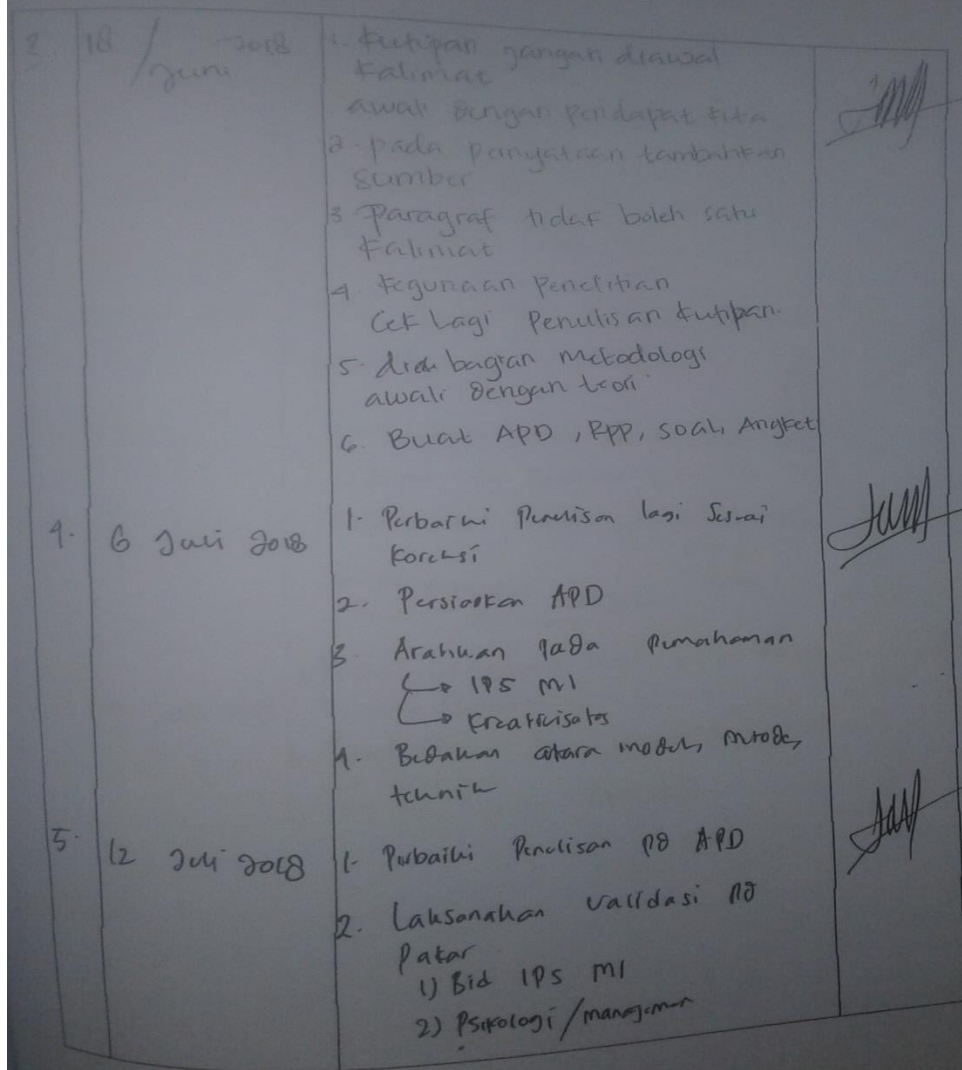 2 18 / Juni 2018 1. Kutipan jangan diawal
kalimat
awali dengan pendapat kita
2. pada pernyataan tambahkan
sumber
3 Paragraf tidak boleh satu
kalimat
4 Kegunaan Penelitian
Cek Lagi Penulisan kutipan.
5. bagian metodologi
awali dengan teori
6. Buat APD, RPP, soal, Angket
4. 6 Juli 2018 1. Perbaiki Penulisan lagi Sesuai
Koreksi
2. Persiapkan APD
3 Arahkan pada Pemahaman
→ IPS MI
→ Kreativisatas
4. Bedakan antara model, metode,
teknik
5. 12 Juli 2018 1. Perbaiki Penulisan pd APD
2. Laksanakan validasi pd
Pakar
1) Bid IPS MI
2) Psikologi/manajemen